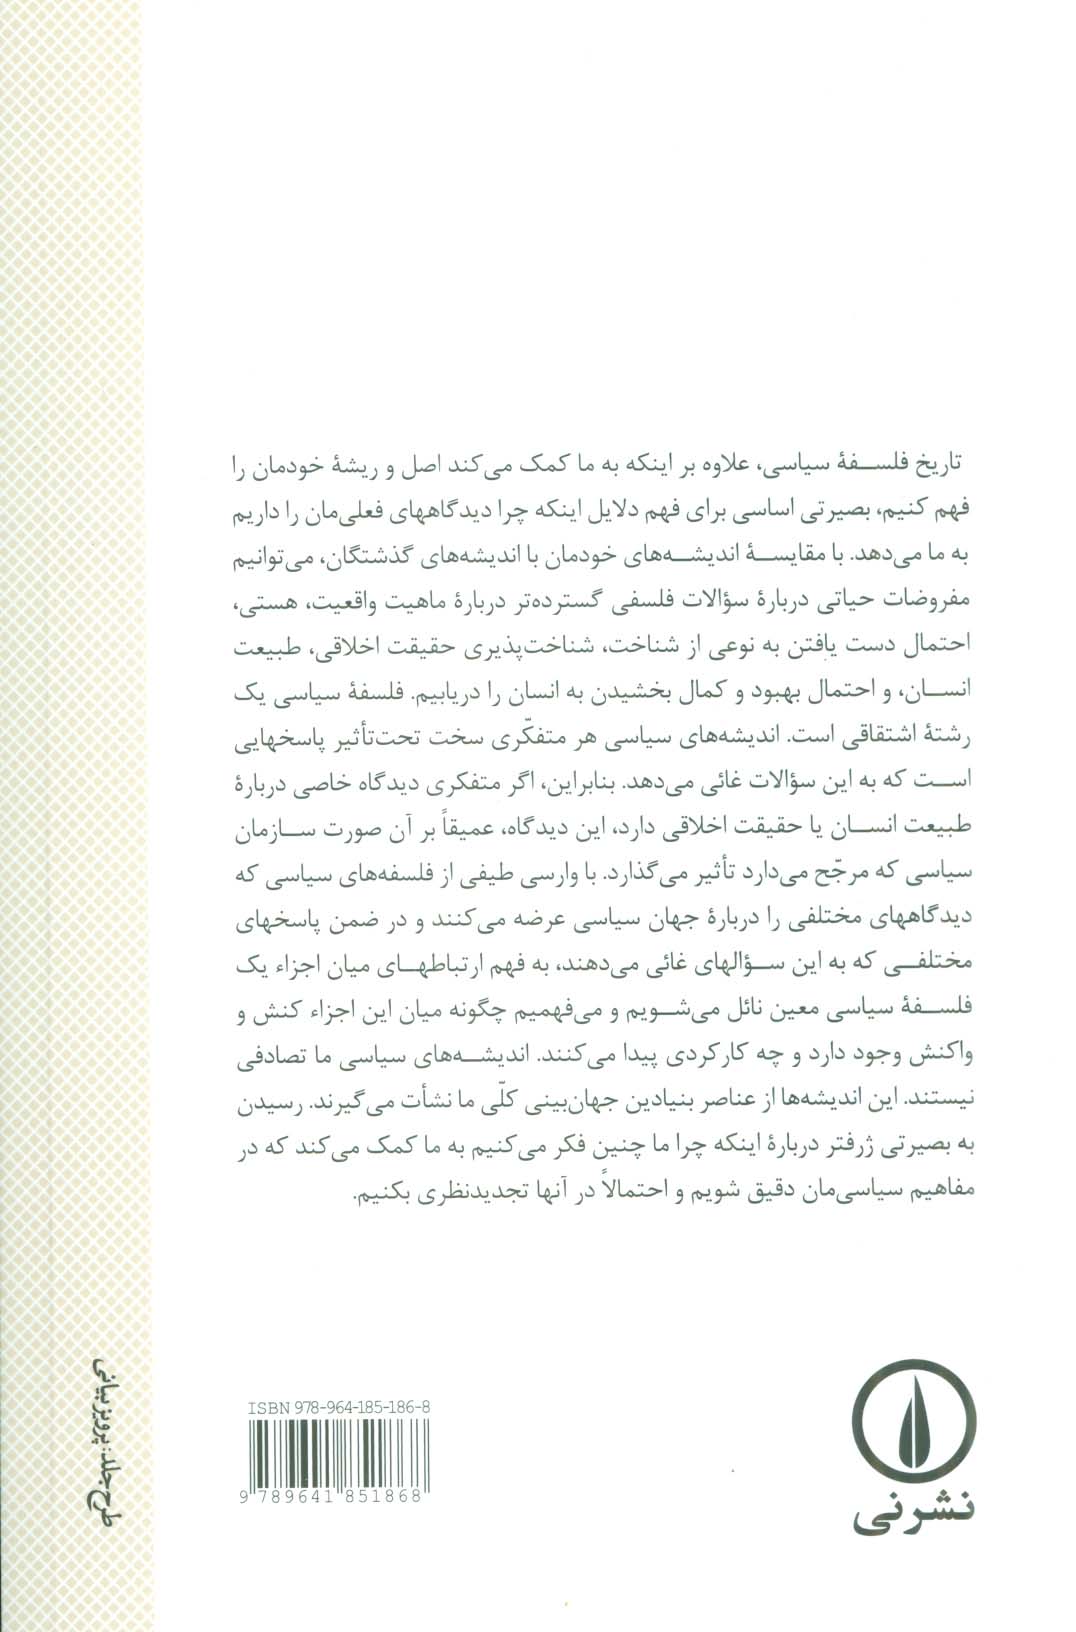 تاریخ فلسفهٔ سیاسی، علاوه بر اینکه به ما کمک می‌کند اصل و ریشهٔ خودمان را
فهم کنیم، بصیرتی اساسی برای فهم دلایل اینکه چرا دیدگاههای فعلی‌مان را داریم
به ما می‌دهد. با مقایسهٔ اندیشه‌های خودمان با اندیشه‌های گذشتگان، می‌توانیم
مفروضات حیاتی دربارهٔ سؤالات فلسفی گسترده‌تر دربارهٔ ماهیت واقعیت، هستی،
احتمال دست یافتن به نوعی از شناخت، شناخت‌پذیری حقیقت اخلاقی، طبیعت
انسان، و احتمال بهبود و کمال بخشیدن به انسان را دریابیم. فلسفهٔ سیاسی یک
رشتهٔ اشتقاقی است. اندیشه‌های سیاسی هر متفکّری سخت تحت‌تأثیر پاسخهایی
است که به این سؤالات غائی می‌دهد. بنابراین، اگر متفکری دیدگاه خاصی دربارهٔ
طبیعت انسان یا حقیقت اخلاقی دارد، این دیدگاه، عمیقاً بر آن صورت سازمان
سیاسی که مرجّح می‌دارد تأثیر می‌گذارد. با وارسی طیفی از فلسفه‌های سیاسی که
دیدگاههای مختلفی را دربارهٔ جهان سیاسی عرضه می‌کنند و در ضمن پاسخهای
مختلفی که به این سؤالهای غائی می‌دهند، به فهم ارتباطهای میان اجزاء یک
فلسفهٔ سیاسی معین نائل می‌شویم و می‌فهمیم چگونه میان این اجزاء کنش و
واکنش وجود دارد و چه کارکردی پیدا می‌کنند. اندیشه‌های سیاسی ما تصادفی
نیستند. این اندیشه‌ها از عناصر بنیادین جهان‌بینی کلّی ما نشأت می‌گیرند. رسیدن
به بصیرتی ژرفتر دربارهٔ اینکه چرا ما چنین فکر می‌کنیم به ما کمک می‌کند که در
مفاهیم سیاسی‌مان دقیق شویم و احتمالاً در آنها تجدیدنظری بکنیم.
طرح جلد: پرویز بیانی
ISBN 978-964-185-186-8
9 789641 851868
نشرنی